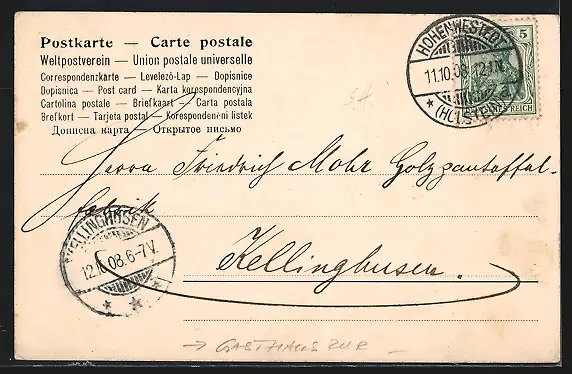 Postkarte — Carte postale
Weltpostverein — Union postale universelle
Correspondenzkarte — Levelező-Lap — Dopisnice
Dopisnica — Post card — Karta korespondencyjna
Cartolina postale — Briefkaart — Carta postala
Brefkort — Tarjeta postal — Korespondenční lístek
Дописна карта — Открытое письмо
HOHENWESTEDT
11.10.08 12-1N.
* (HOLSTEIN) *
5
DEUTSCHES REICH
Herrn Friedrich Mohr Holzpantoffel-
fabrik
Kellinghusen.
KELLINGHUSEN
08.6-7V.
→ GASTHAUS ZUR